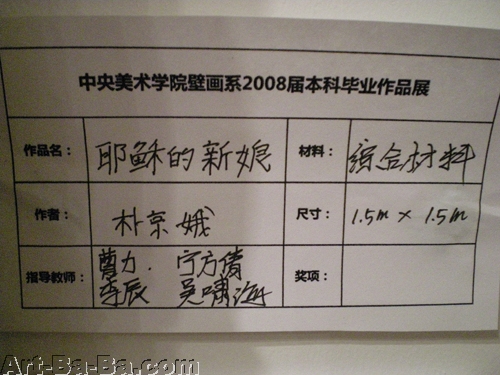 中央美术学院壁画系2008届本科毕业作品展
作品名： 耶稣的新娘 材料： 综合材料
作者： 朴京娥 尺寸： 1.5m × 1.5m
指导教师： 曹力. 宁方倩 奖项：
李辰 吴啸海
Art-Ba-Ba.com